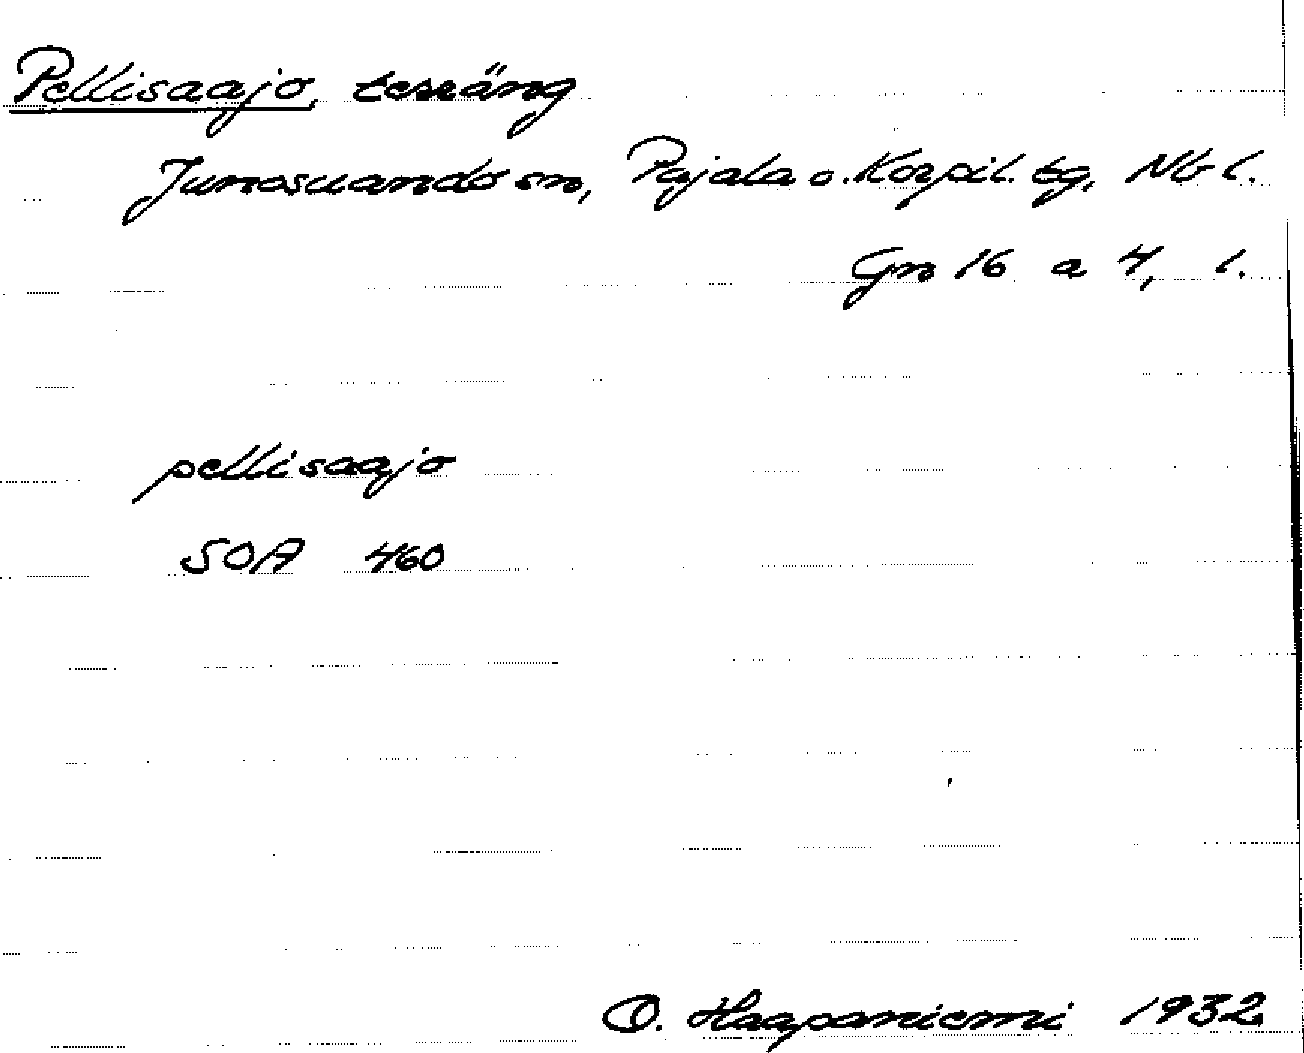 Pellisaajo, teräng
Junosuando sn, Pajala o. Korpil. tg, Nb l.
Gn 16 a 4, l.
pellisaajo
SOA 460
O. Haapaniemi 1932